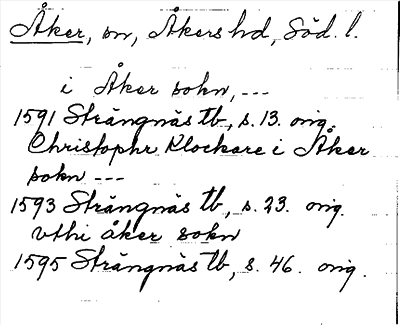 Åker, sn, Åkers hd, Söd. l.
i Åker sokn, ---
1591 Strängnäs tb, s. 13. orig.
Christophr Klockare i Åker
sokn ---
1593 Strängnäs tb, s. 23. orig.
vthi åker sokn
1595 Strängnäs tb, s. 46. orig.